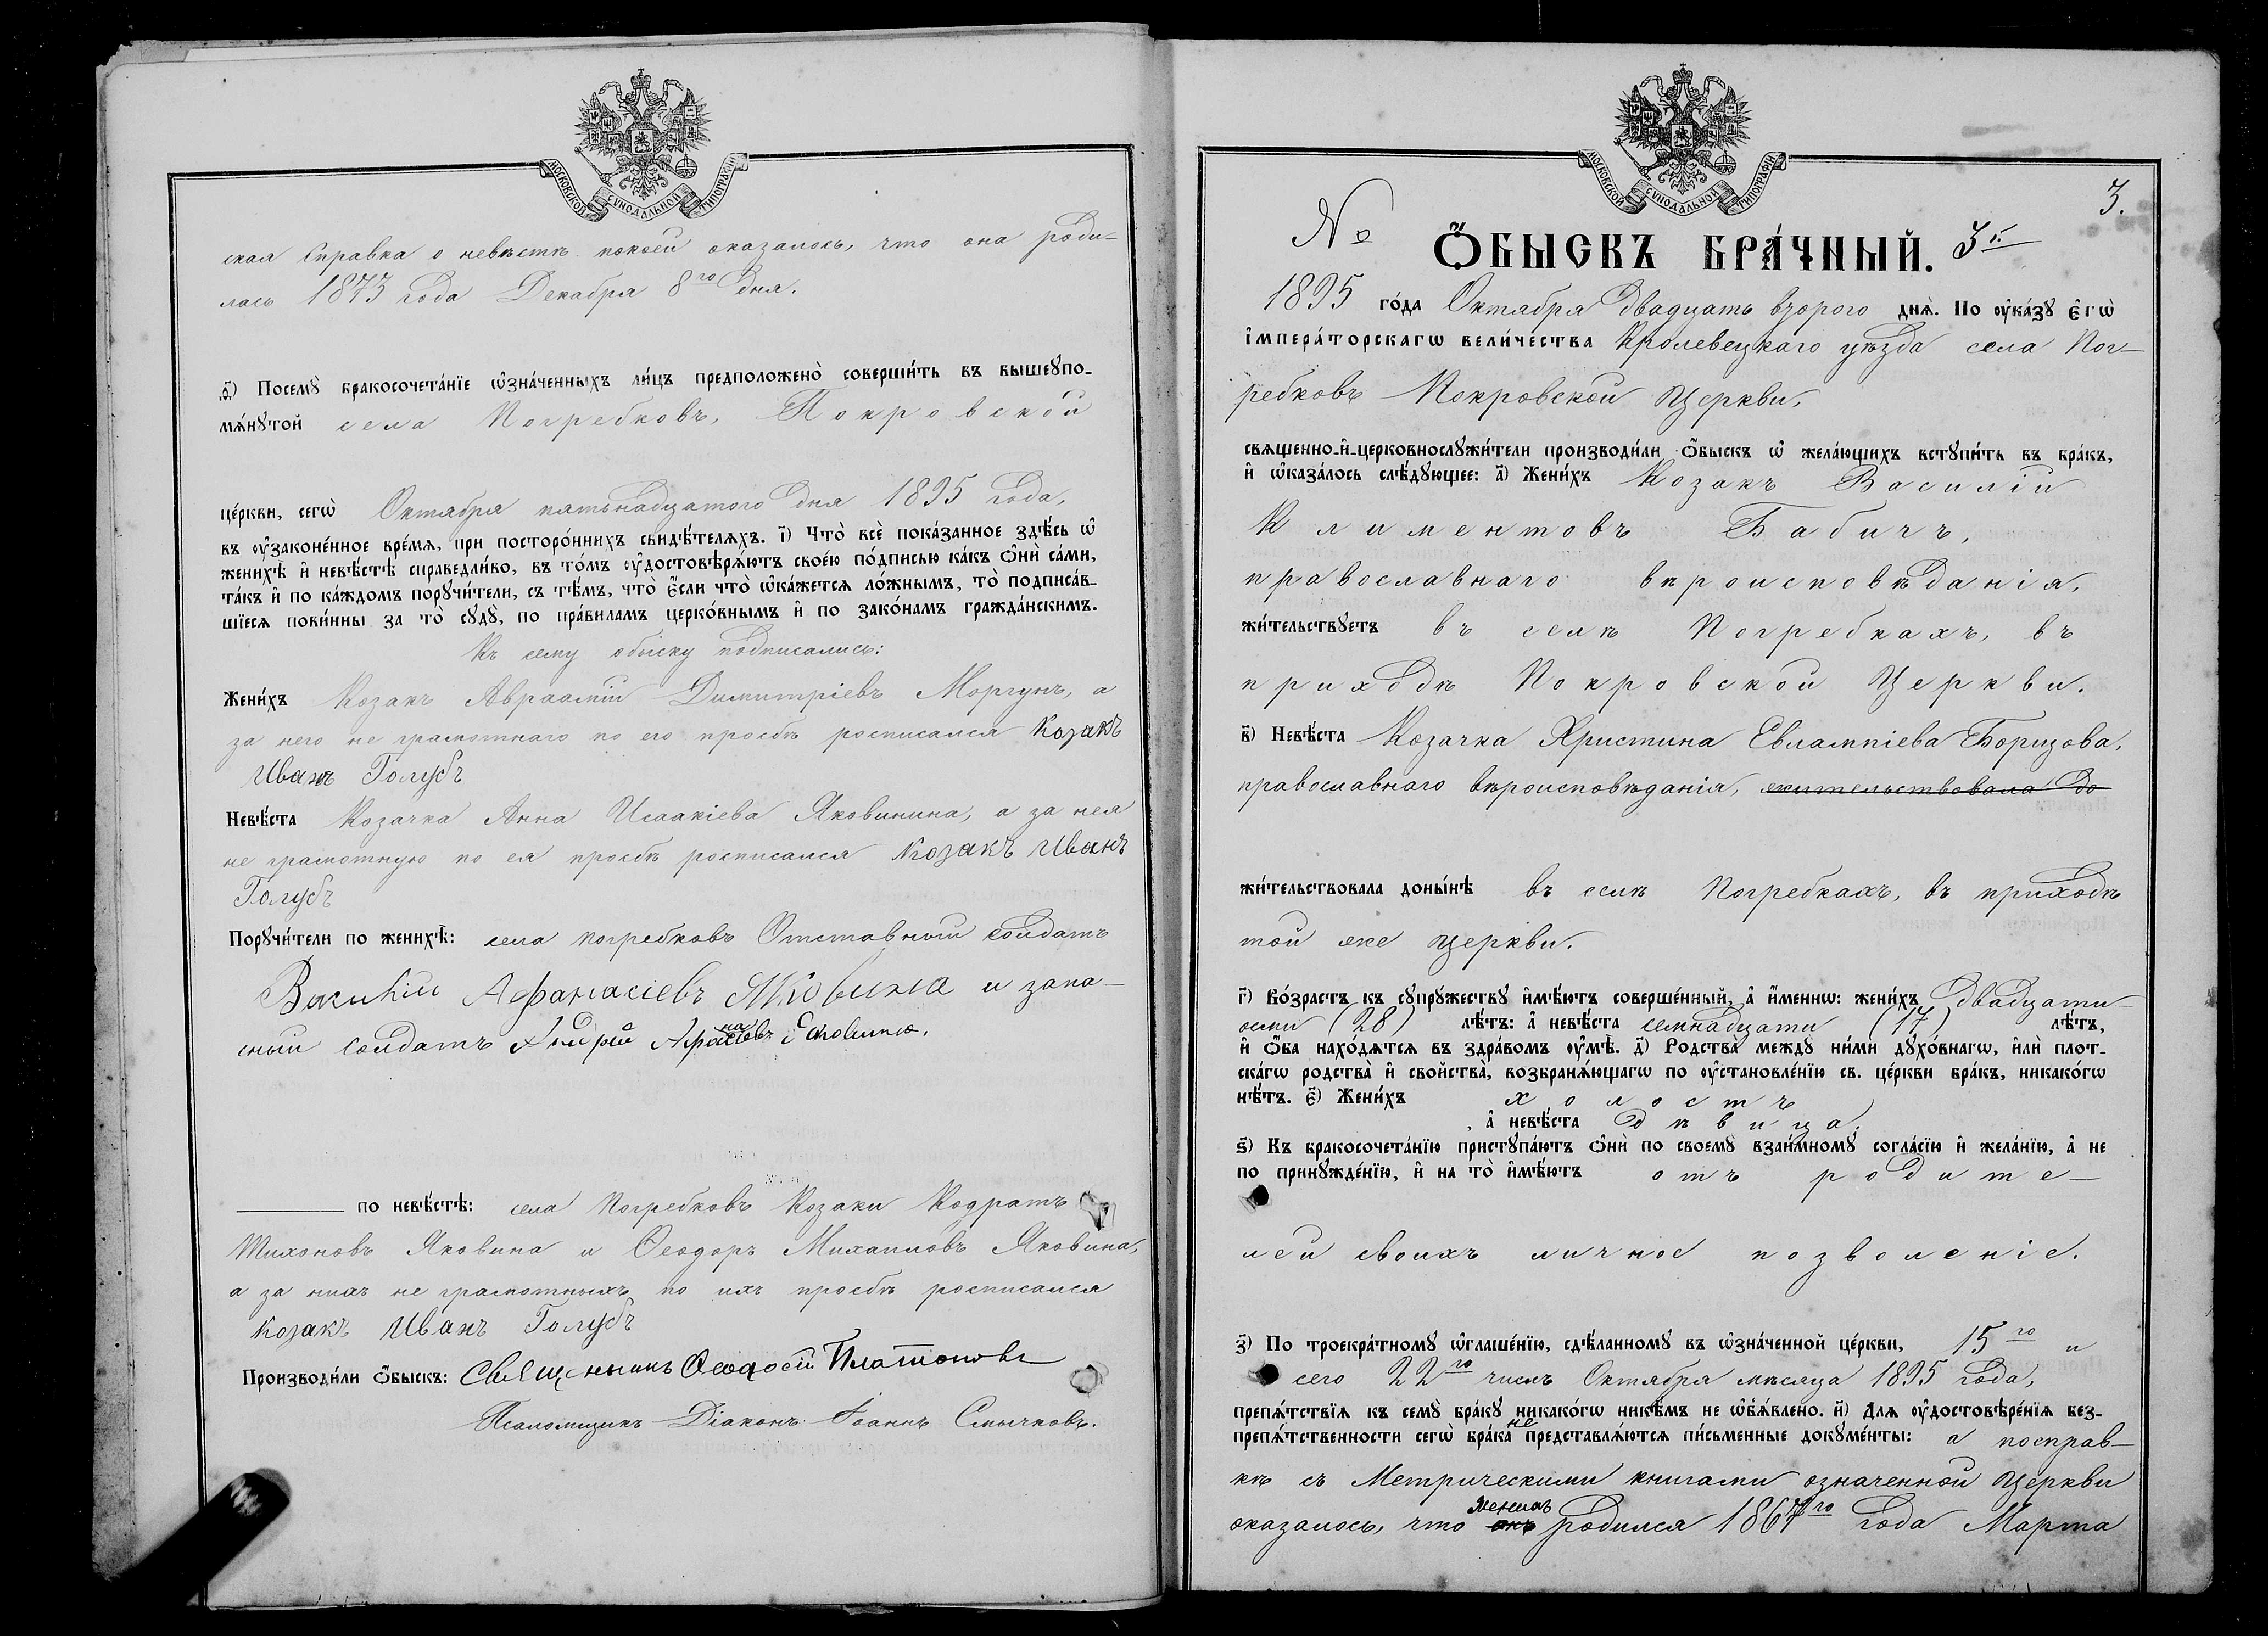 МОСКОВСКОЙ СѴНОДАЛЬНОЙ ТИПОГРАФІИ
ская справка о невѣстѣ по коей оказалось, что она роди-
лась 1873 года Декабря 8го дня.
ѳ҃) Посемꙋ̀ бракосочета́нїе ѡ҆зна́ченныхъ ли́цъ предположено̀ соверши́ть въ вышеꙋпо-
мѧ́нꙋтой села Погребковъ, Покровской
це́ркви, сегѡ̀ Октября пятьнадцатого дня 1895 года,
въ ᲂу҆законе́нное вре́мѧ, при посторо́ннихъ свидѣ́телѧхъ. і҃) Что̀ всѐ пока́занное здѣ́сь ѡ҆
женихѣ̀ и҆ невѣ́стѣ справедли́во, въ то́мъ ᲂу҆достовѣрѧ́ютъ свое́ю по́дписью ка́къ ѻ҆нѝ са́ми,
та́къ и҆ по ка́ждомъ порꙋчи́тели, съ тѣ́мъ, что̀ є҆́сли что̀ ѡ҆ка́жется ло́жнымъ, то̀ подписа́в-
шїеся пови́нны за то̀ сꙋдꙋ̀, по пра́виламъ церко́внымъ и҆ по зако́намъ гражда́нскимъ.
Къ сему обыску подписались:
Жени́хъ Козакъ Авраамій Димитріевъ Моргунъ, а
за него не грамотнаго по его просбѣ росписался Козакъ
Иванъ Голубъ
Невѣ́ста Козачка Анна Исаакіева Яковинина, а за нея
не грамотную по ея просбѣ росписался Козакъ Иванъ
Голубъ
Порꙋчи́тели по женихѣ̀: села Погребковъ Отставный солдатъ
Василій Афанасіевъ Яковина и запа-
сный солдатъ Андрій Афанасіевъ Яковина.
по невѣ́стѣ: села Погребковъ Козаки Кодратъ
Тихоновъ Яковина и Ѳеодоръ Михаиловъ Яковина,
а за нихъ не грамотныхъ по ихъ просбѣ росписался
Козакъ Иванъ Голубъ
Производи́ли ѻ҆́быскъ: Священникъ Ѳеодосій Платоновъ
Псаломщикъ Діаконъ Іоаннъ Смычковъ.
МОСКОВСКОЙ СѴНОДАЛЬНОЙ ТИПОГРАФІИ
3.
№ Ѻ҆́БЫСКЪ БРА́ЧНЫЙ. 3й
1895 го́да Октября двадцать второго днѧ̀. По ᲂу҆ка́зꙋ є҆гѡ̀
і҆мпера́торскагѡ вели́чества Кролевецкаго уѣзда села Пог-
ребковъ Покровской Церкви,
священно-и҆-церковнослꙋжи́тели производи́ли ѻ҆́быскъ ѡ҆ жела́ющихъ встꙋпи́ть въ бра́къ,
и҆ ѡ҆каза́лось слѣ́дꙋющее: а҃) Жени́хъ Козакъ Василій
Климентовъ Бабичъ,
православнаго вѣроисповѣданія,
жи́тельствꙋетъ въ селѣ Погребкахъ, въ
приходѣ Покровской Церкви.
в҃) Невѣ́ста Козачка Христина Евлампіева Боризова,
православнаго вѣроисповѣданія, жительствовала до
жи́тельствовала доны́нѣ въ селѣ Погребкахъ, въ приходѣ
той же церкви.
г҃) Во́зрастъ къ сꙋпрꙋ́жествꙋ и҆мѣ́ютъ соверше́нный, а҆ и҆́меннѡ: жени́хъ двадцати-
осми (28) лѣ́тъ: а҆ невѣ́ста семнадцати (17) лѣ́тъ,
и҆ ѻ҆́ба нахо́дѧтся въ здра́вомъ ᲂу҆мѣ̀. д҃) Родства̀ междꙋ ни́ми дꙋхо́внагѡ, и҆лѝ плот-
ска́гѡ родства̀ и҆ свойства̀, возбранѧ́ющагѡ по ᲂу҆становле́нїю св. це́ркви бра́къ, никако́гѡ
нѣ́тъ. є҃) Жени́хъ холостъ
, а҆ невѣ́ста дѣвица.
ѕ҃) Къ бракосочета́нїю пристꙋпа́ютъ ѻ҆нѝ по своемꙋ̀ взаи́мномꙋ согла́сїю и҆ жела́нїю, а҆ не
по принꙋжде́нїю, и҆ на то̀ и҆мѣ́ютъ отъ родите-
лей своихъ личное позволеніе.
з҃) По троекра́тномꙋ ѡ҆глаше́нїю, сдѣ́ланномꙋ въ ѡ҆зна́ченной це́ркви, 15го и
сего 22го числъ Октября мѣсяца 1895 года,
препѧ́тствїѧ къ семꙋ̀ бра́кꙋ никако́гѡ никѣ́мъ не ѡ҆б̾ѧ́влено. и҃) Для ᲂу҆достовѣре́нїѧ без-
препѧ́тственности сегѡ̀ бра́ка не представлѧ́ются пи́сьменные докꙋме́нты: а посправ-
кѣ съ Метрическими книгами означенной Церкви
оказалось, что онъ женихъ родился 1867го года Марта